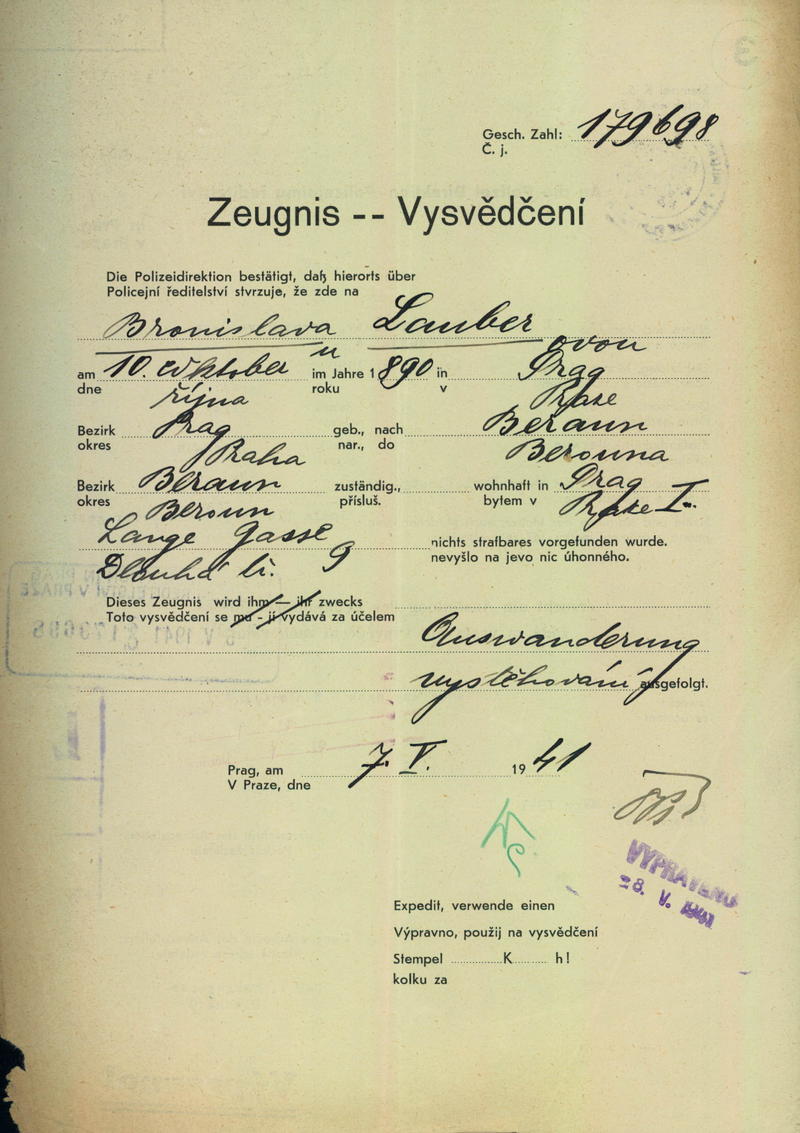 Gesch. Zahl: 179698
Č. j.
Zeugnis -- Vysvědčení
Die Polizeidirektion bestätigt, daß hierorts über
Policejní ředitelství stvrzuje, že zde na
Bronislava Lauber
u ovou
am 10. Oktober im Jahre 1890 in Prag
dne října roku v Praze
Bezirk Prag geb., nach Beraun
okres Praha nar., do Berouna
Bezirk Beraun zuständig., wohnhaft in Prag
okres Beroun přísluš. bytem v Praze I.
Lange Gasse nichts strafbares vorgefunden wurde.
Dlouhá tř. 9 nevyšlo na jevo nic úhonného.
Dieses Zeugnis wird ihm — ihr zwecks
Toto vysvědčení se mu - jí vydává za účelem
Auswanderung
vystěhování ausgefolgt.
Prag, am 7. V. 1941
V Praze, dne
VYPRAVENO
28. V. 1941
Expedit, verwende einen
Výpravno, použij na vysvědčení
Stempel ............K......... h!
kolku za